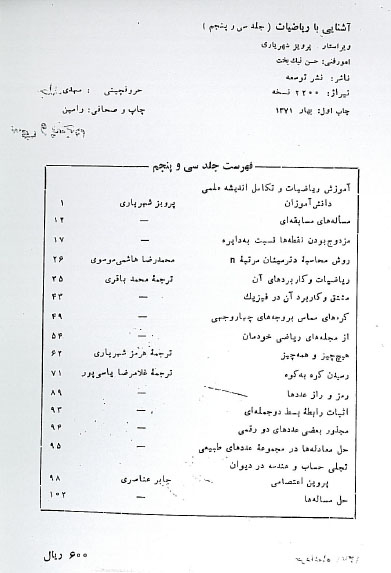 آشنایی با ریاضیات ( جلد سی و پنجم )
ویراستار: پرویز شهریاری
امورفنی: حسن نیك‌بخت
ناشر: نشر توسعه
حروفچینی : سهدی
تیراژ: ۲۲۰۰ نسخه
چاپ و صحافی: رامین
چاپ اول: بهار ۱۳۷۱
فهرست جلد سی و پنجم
آموزش ریاضیات و تکامل اندیشه علمی
دانش‌آموزان پرویز شهریاری ۱
مسأله‌های مسابقه‌ای — ۱۲
مزدوج‌بودن نقطه‌ها نسبت به‌دایره — ۱۷
روش محاسبهٔ دترمینان مرتبهٔ n محمدرضا هاشمی‌موسوی ۲۶
ریاضیات وکاربردهای آن ترجمهٔ محمد باقری ۳۵
مشتق وکاربرد آن در فیزیك — ۴۳
کره‌های مماس بروجه‌های چهاروجهی — ۴۹
از مجله‌های ریاضی خودمان — ۵۴
هیچ‌چیز و همه‌چیز ترجمهٔ هرمز شهریاری ۶۲
رسیدن کوه به‌کوه ترجمهٔ غلامرضا یاسی‌پور ۷۱
رمز و راز عددها — ۸۹
اثبات رابطهٔ بسط دوجمله‌ای — ۹۳
مجذور بعضی عددهای دو رقمی — ۹۴
حل معادله‌ها در مجموعهٔ عددهای طبیعی — ۹۵
تجلی حساب و هندسه در دیوان
پروین اعتصامی جابر عناصری ۹۸
حل مساله‌ها — ۱۰۲
۶۰۰ ریال